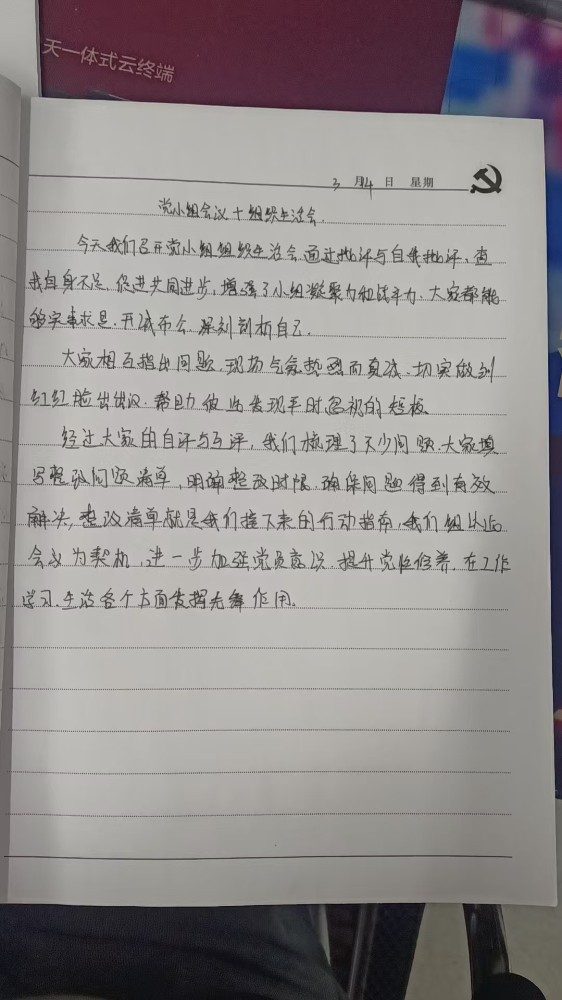 天一体式云终端
3 月 14 日 星期
党小组会议+组织生活会.
今天我们召开党小组组织生活会,通过批评与自我批评、查
找自身不足,促进共同进步,增强了小组凝聚力和战斗力.大家都能
够实事求是,开诚布公,深刻剖析自己.
大家相互指出问题,现场气氛热烈而真诚.切实做到
红红脸出出汗.帮助彼此发现平时忽视的短板.
经过大家的自评与互评,我们梳理了不少问题.大家填
写整改问题清单,明确整改时限.确保问题得到有效
解决,整改清单就是我们接下来的行动指南,我们组以此
会议为契机,进一步加强党员意识.提升党性修养.在工作
学习.生活各个方面发挥先锋作用.